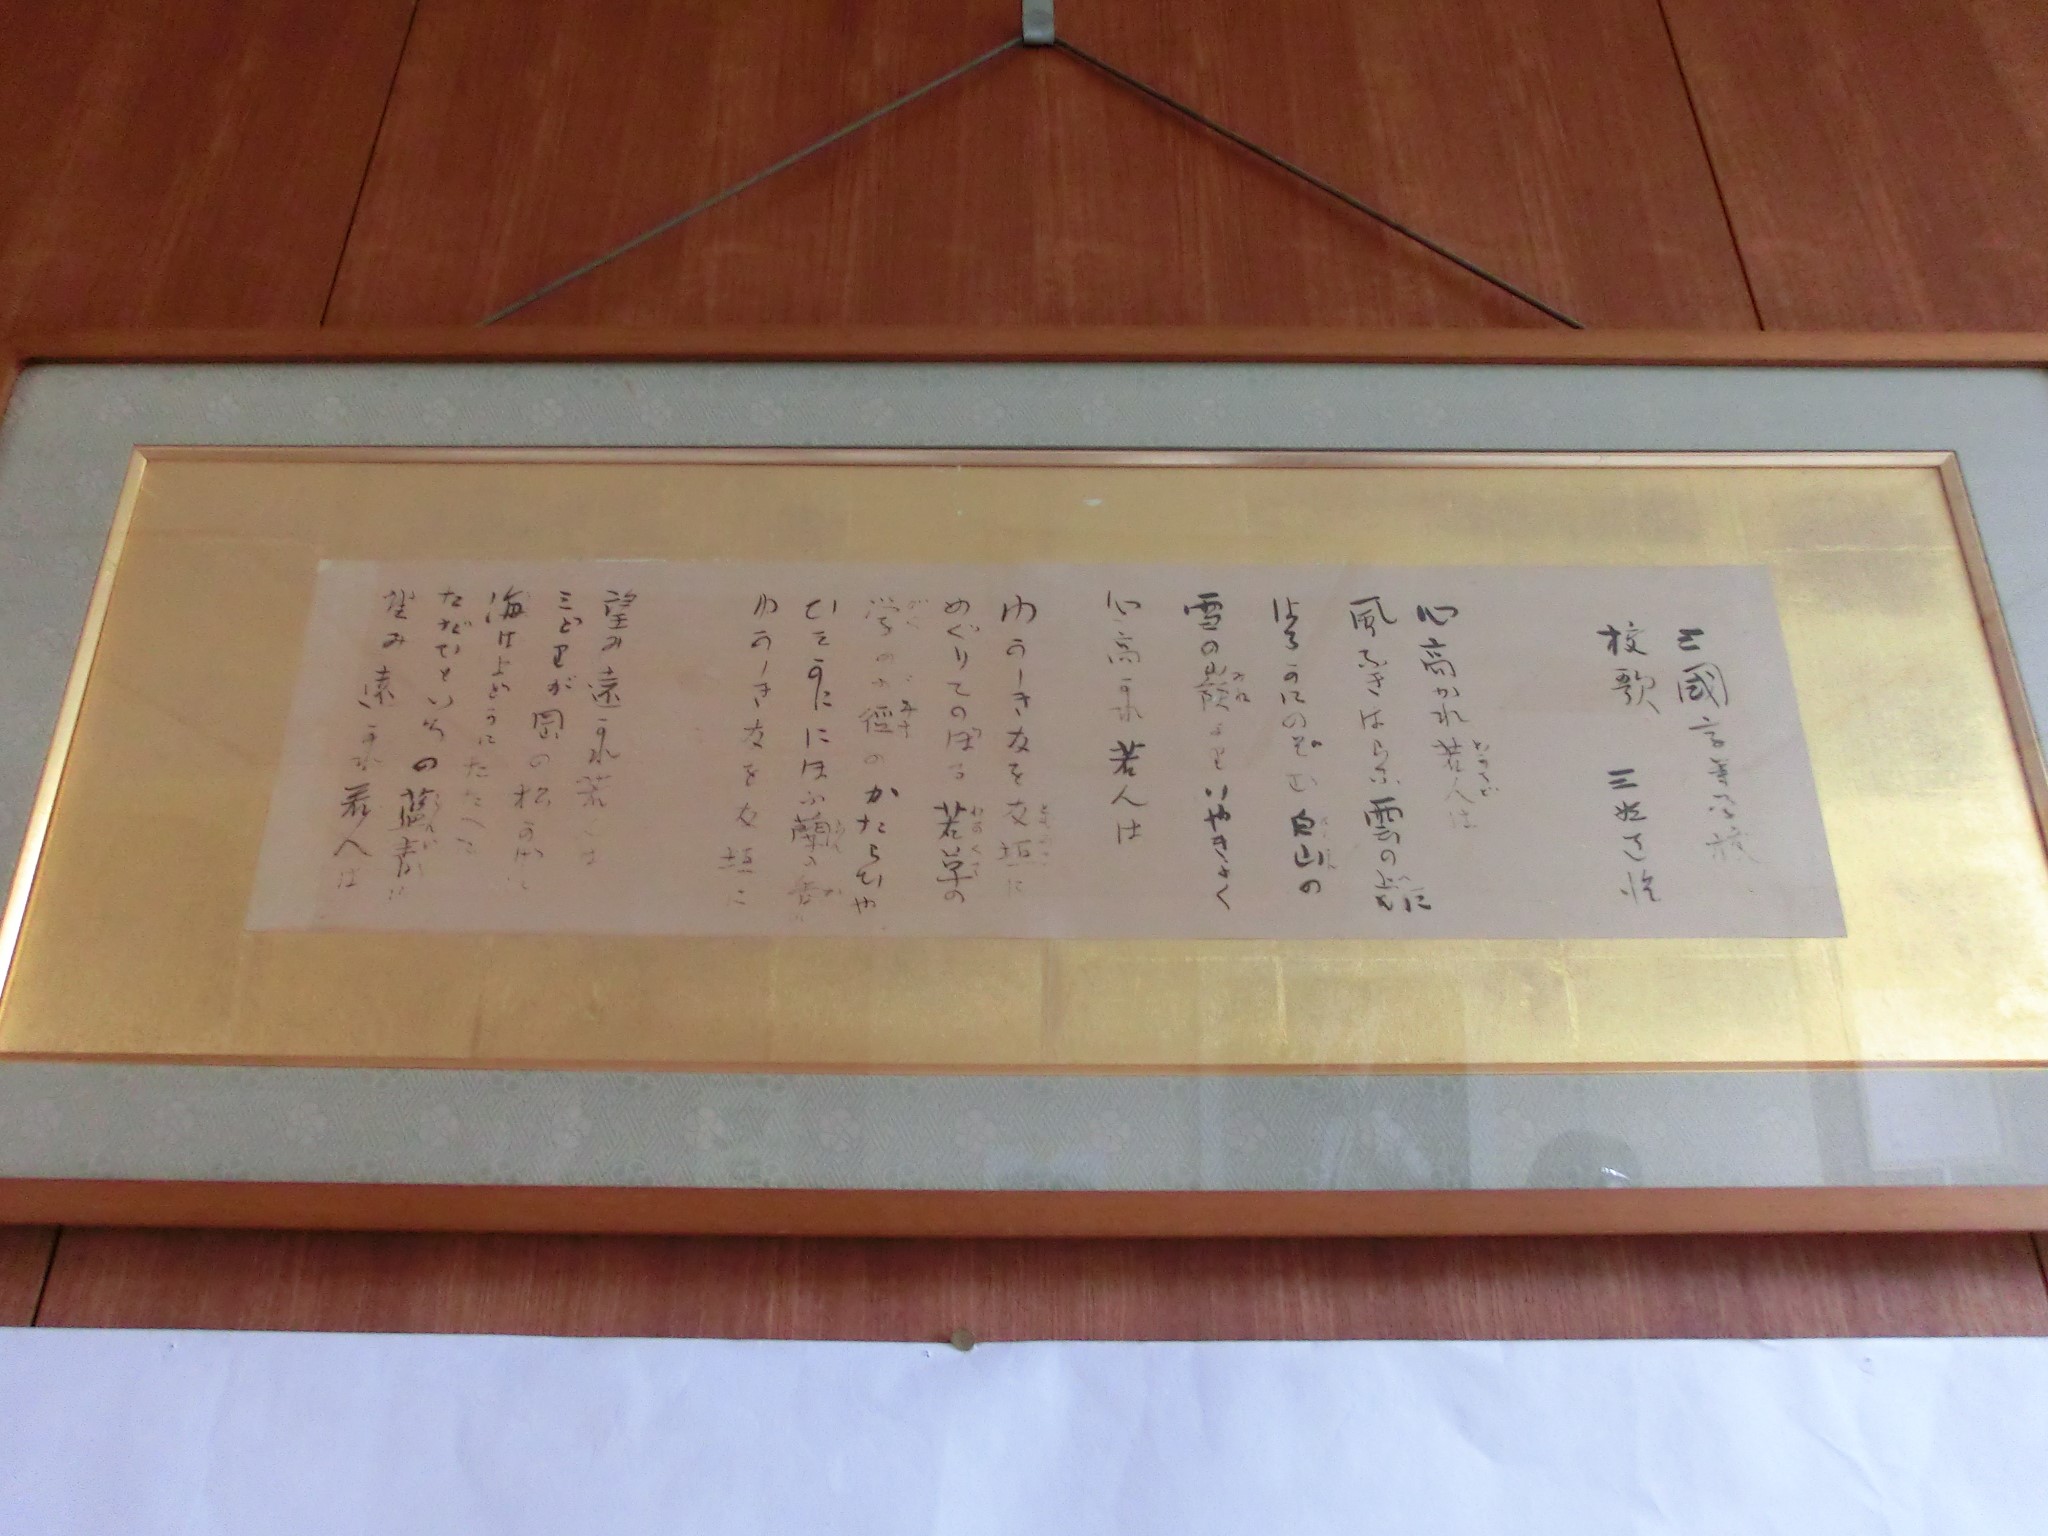 三國高等学校
校歌 三好達治
心高かれ若人は
わかうど
風ふきはらふ雲の上に
はるかにのぞむ白山の
雪の巓よりいやさやく
みね
心高かれ若人は
ゆかしき友を友垣に
めぐりてのぼる若草の
わかくさ
学の小徑のかたらひや
がく
ひそかににほふ蘭の香に
らん か
ゆかしき友を友垣に
望み遠かれ若人は
みどりが岡の松のかげ
海はよどかにたたへて
ただひといろの藍青に
望み遠かれ若人は